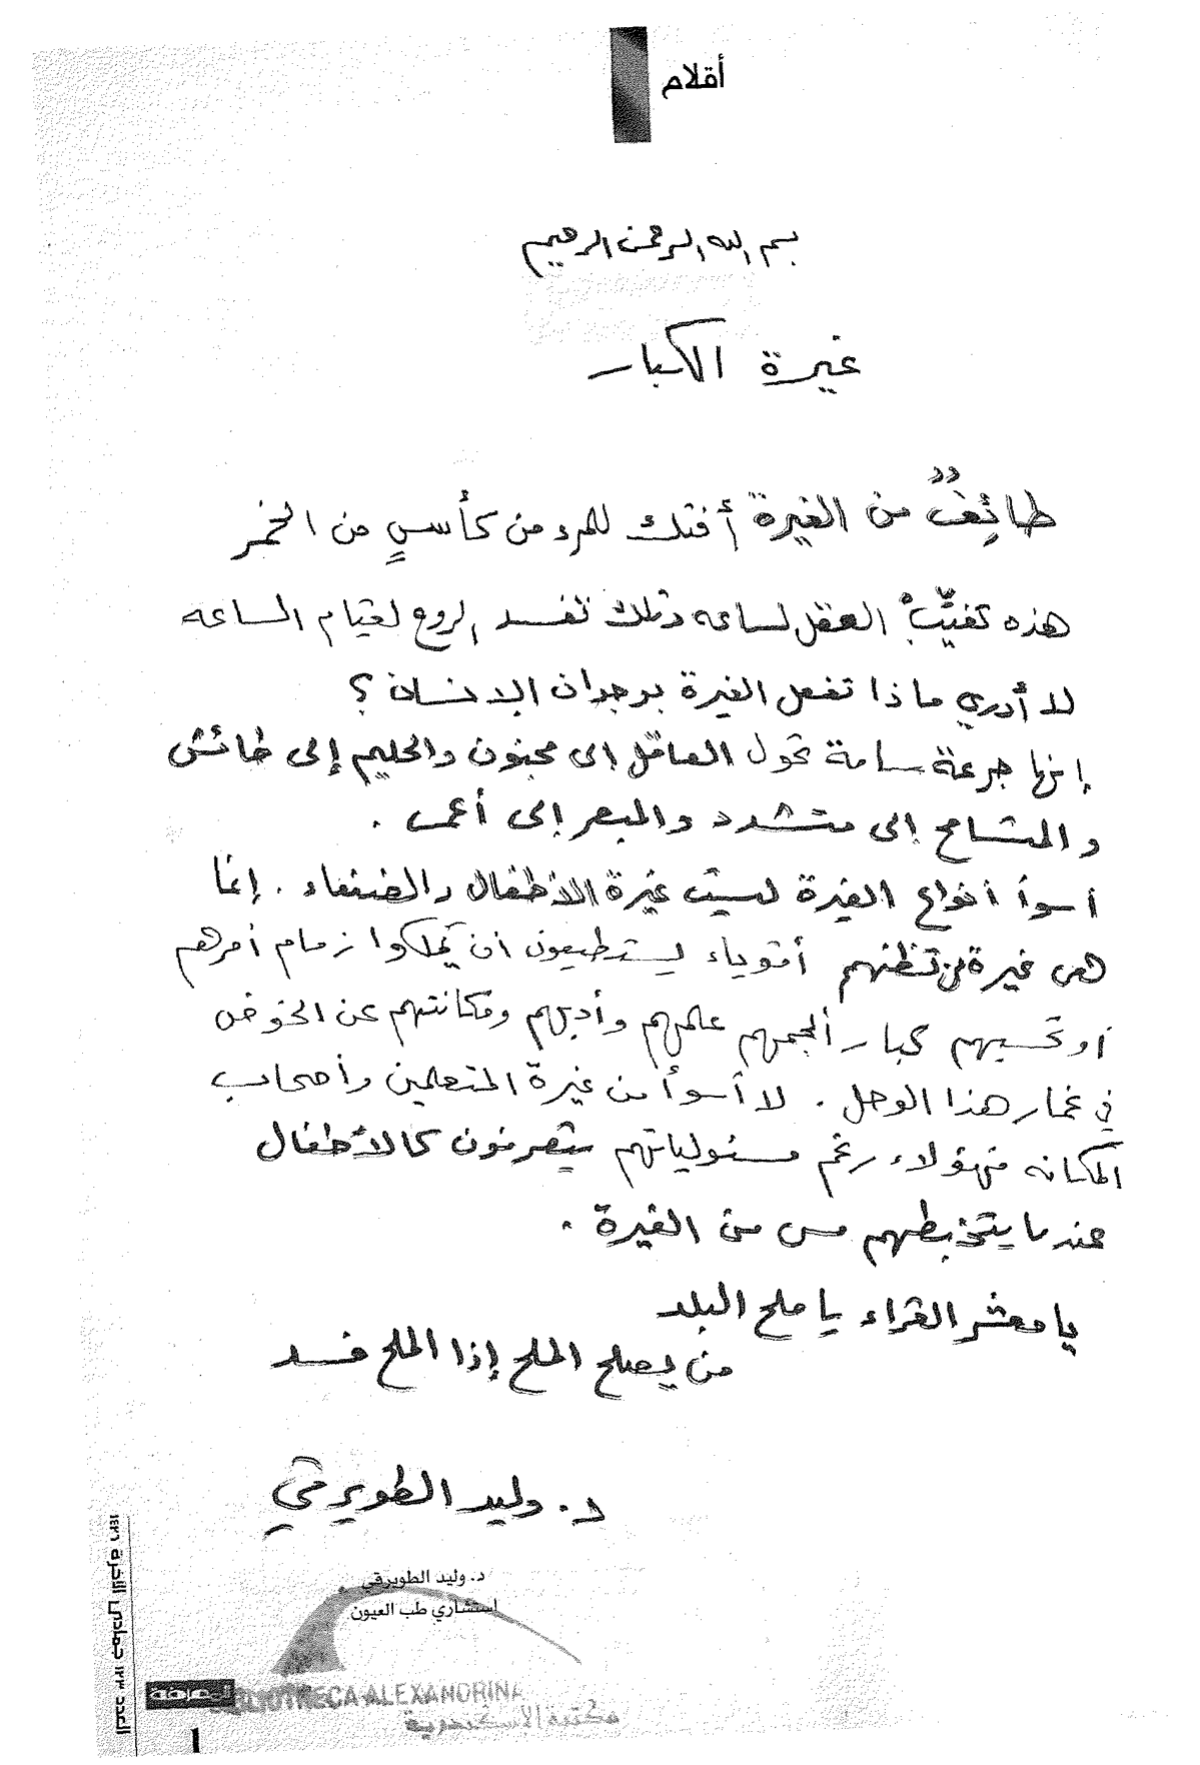 أقلام
بسم الله الرحمن الرحيم
غيرة الكبار
طائِفٌ من الغيرة أفتك للمرء من كأسٍ من الخمر
هذه تغيِّبُ العقل لساعه وتلك تفسد الروح لقيام الساعه
لا أدري ماذا تفعل الغيرة بوجدان الإنسان ؟
إنها جرعة سامة تحول العاقل إلى مجنون والحليم إلى طائش
والمتسامح إلى متشدد والمبصر إلى أعمى .
أسوأ أنواع الغيرة ليست غيرة الأطفال والضعفاء . إنما
هي غيرة من تظنهم أقوياء يستطيعون أن يملكوا زمام أمرهم
أو تحسبهم كبار ألجمهم علمهم وأدبهم ومكانتهم عن الخوض
في غمار هذا الوحل . لا أسوأ من غيرة المتعلمين وأصحاب
المكانه فهؤلاء رغم مسئولياتهم يتصرفون كالأطفال
عندما يتخبطهم مس من الغيرة .
يا معشر القراء يا ملح البلد
من يصلح الملح إذا الملح فسد
د. وليد الطويرقي
د. وليد الطويرقي
استشاري طب العيون
BIBLIOTHECA ALEXANDRINA
مكتبة الإسكندرية
المعرفة
العدد ١٢٣ جمادى الآخرة ١٤٢٦
١